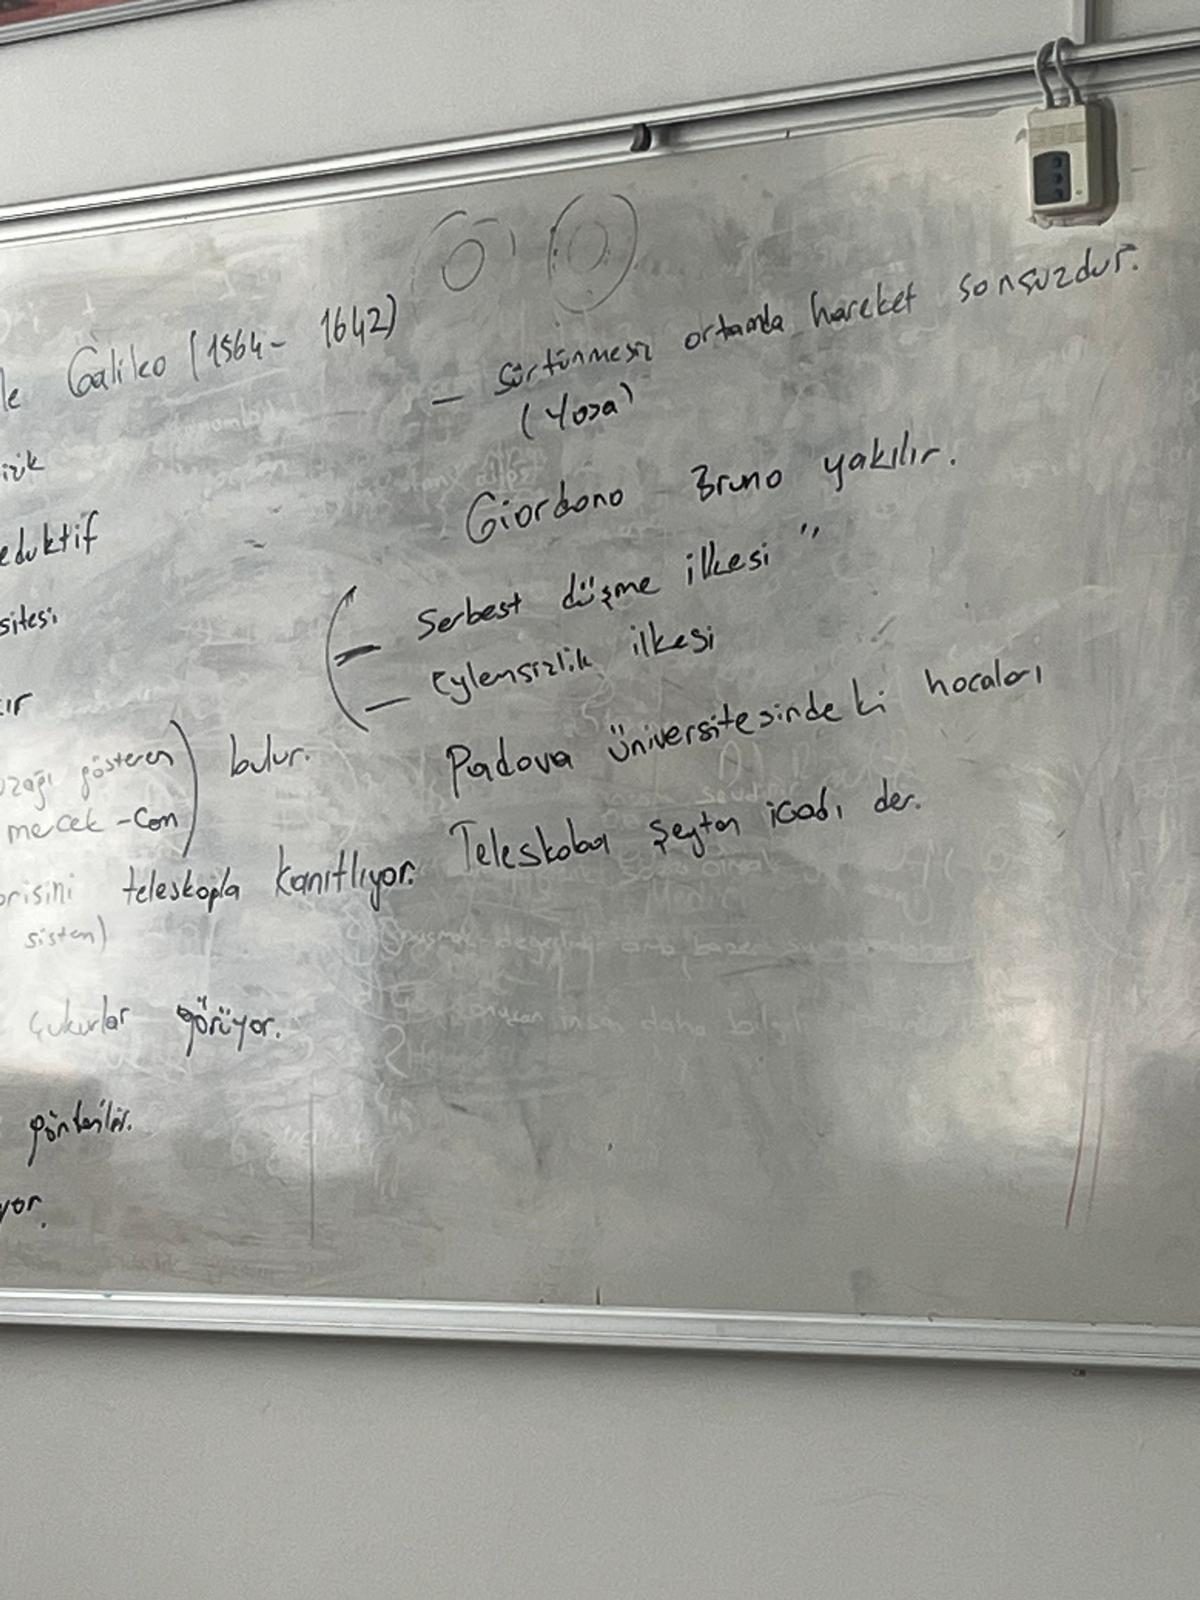 le Galileo (1564 - 1642)
izik
eduktif
sitesi
ır
ozağı gösteren
mecek - Cam
bulur.
orisini teleskopla kanıtlıyor.
sistem)
çukurlar görüyor.
gönderilir.
yor.
- Sürtünmesiz ortamda hareket sonsuzdur.
(Yasa)
Giordano Bruno yakılır.
- Serbest düşme ilkesi "
- Eylemsizlik ilkesi
Padova üniversitesindeki hocaları
Teleskoba şeytan icadı der.